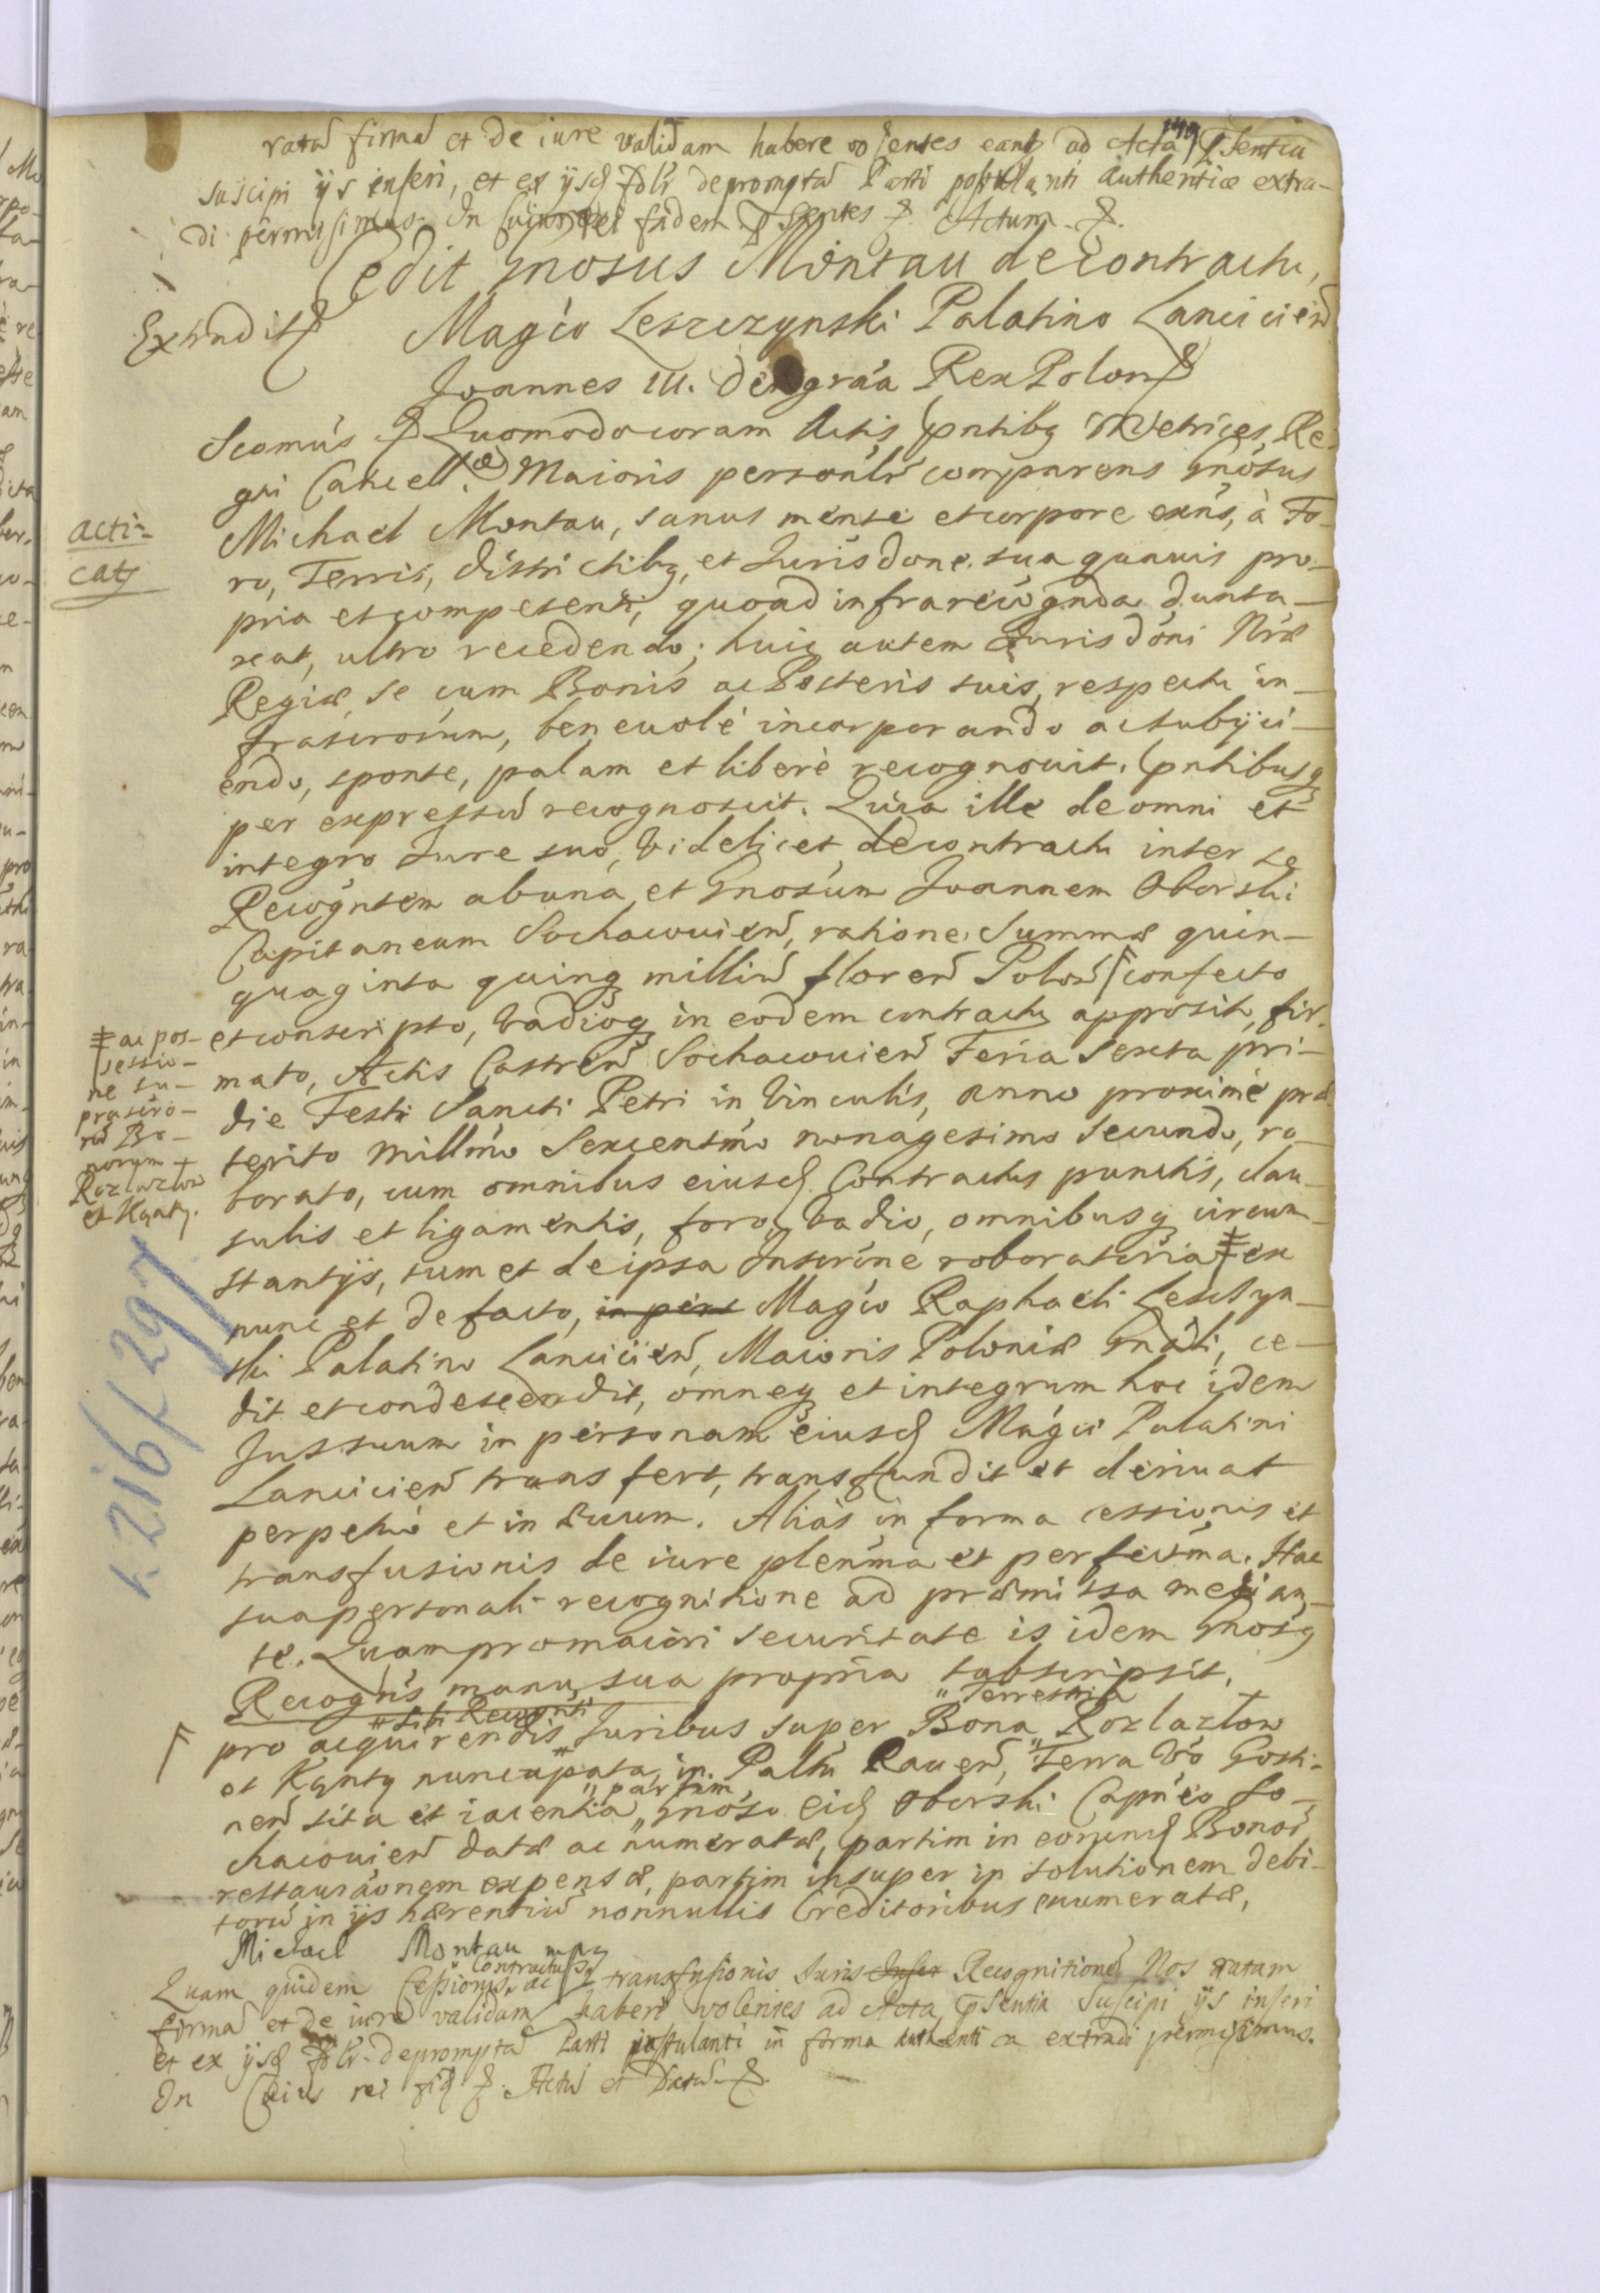 149
ratã firmã et de iure validam habere volentes eanq ad Acta pñsentia
suscipi ijs inseri, et ex ijsd fidlr depromptã Parti postulanti authentice extra-
di permisimus. In Cuius rei fidem pñsentes &c Actum &c.
Cedit Gnosus Montau de contractu,
Extradit
Magco Leszczynski Palatino Lanciciens
Joannes III. Dei gra'a Rex Polon
Scamus &c Quomodo coram Actis pntibq Metrices Re-
gni Cancell'æ Maioris personlr comparens Gnosus
acti-
catq
Michael Montau, sanus mente et corpore exns, à Fo-
ro, Terris, districtibq, et Jurisdone sua quavis pro-
pria et competenti, quoad infra recognda dunta-
xat, ultro recedendo; huic autem Jurisdoni Nræ
Regiæ, se cum Bonis ac Posteris suis, respectu in-
frascrorum, benevolè incorporando ac subijci-
endo, sponte, palam et liberè recognovit. Pntibusq
per expressũ recognoscit. Quia ille de omni et
integro Jure suo, videlicet de contractu inter se
Recogntem ab una, et Gnosum Joannem Oborski
Capitaneum Sochacovien, ratione Summæ quin-
quaginta quinq milliũ floren Polon confecto
et conscripto, vadioq in eodem contractu apposito, fir-
mato, Actis Castren Sochacovien Feria Sexta pri-
die Festi Sancti Petri in Vinculis, Anno proximè præ-
terito Millmo Sexcentmo nonagesimo Secundo, ro-
borato, cum omnibus eiusd Contractus punctis, clau-
sulis et ligamentis, foro, vadio, omnibusq circum-
stantijs, tum et de ipsa Inscrine roboratoria ex
ac pos-
sessio-
ne su-
prascro-
rũ Bo-
norum
Rozlazlow
et Kąnty.
nunc et de facto, in pers Magco Raphaeli Leszczyn-
ski Palatino Lancicien, Maioris Poloniæ Gnali, ce-
dit et condescendit, omneq et integrum hoc idem
Jus suum in personam eiusd Magci Palatini
Lancicien transfert, transfundit et derivat
perpetuò et in ævum. Aliàs in forma cessionis et
transfusionis de iure plenma et perfectma. Hac
sua personali recognitione ad præmissa median-
te. Quam pro maiori securitate is idem Gnosq
Recogns manu sua propria subscripsit.
sibi Recognti
Terrestria
pro acquirendis Juribus super Bona Rozlazlow
et Kąnty nuncupata, in Paltu Raven, Terra vo Gosti-
partim
nen sita et iacentia, Gnoso eid Oborski Capneo So-
chacovien datæ ac numeratæ, partim in eorund Bonor
restauraonem expensæ, partim insuper in solutionem debi-
torũ in ijs hærentiũ nonnullis Creditoribus enumeratæ,
Michael Montau mpq
Contractus
Quam quidem Cessionis, ac transfusionis Juris Inscr Recognitionẽ Nos ratam
firmã et de iure validam habere volentes ad Acta pñsentia Suscipi ijs inseri
et ex ijsd fidlr depromptã Parti postulanti in forma authentica extradi permisimus.
In Cuius rei fid &c Actũ et Datũ &c.
k. 216/297